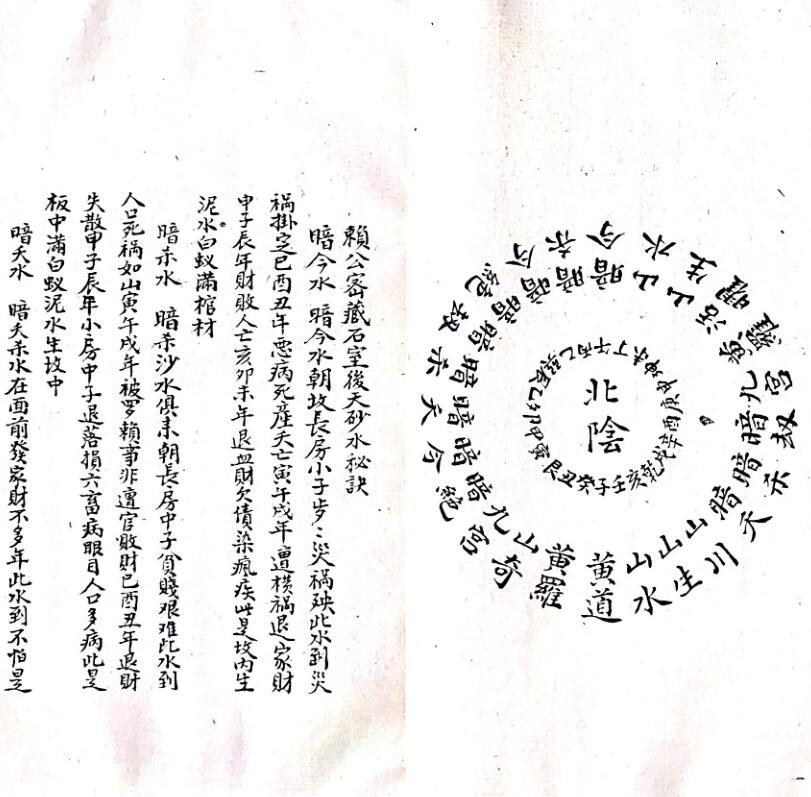 北陰
艮丑癸子壬亥乾戌辛酉庚申坤未丁午丙巳巽辰乙卯甲寅
黄道
山水
山生
山川
暗夭
暗杀
暗劫
九宮
山生
山水
暗今
暗杀
暗今
暗絕
暗劫
暗杀
暗夭
暗今
暗絕
九宮
山奇
黄羅
賴公密藏石室後天砂水秘訣
暗今水 暗今水朝坟長房小子岁々災禍殃此水到災
禍掛定巳酉丑年恶病死産夭亡寅午戌年遭横禍退家財
申子辰年財敗人亡亥卯未年退血財欠債染瘋疾此是坟内生
泥水白蚁滿棺材
暗杀水 暗杀沙水俱来朝長房中子貧賤艰难此水到
人口死禍如山寅午戌年被罗賴事非遭官敗財巳酉丑年退財
失散申子辰年小房中子退落損六畜病眼目人口多病此是
板中滿白蚁泥水生坟中
暗夭水 暗夭杀水在面前發家財不多年此水到不怕是